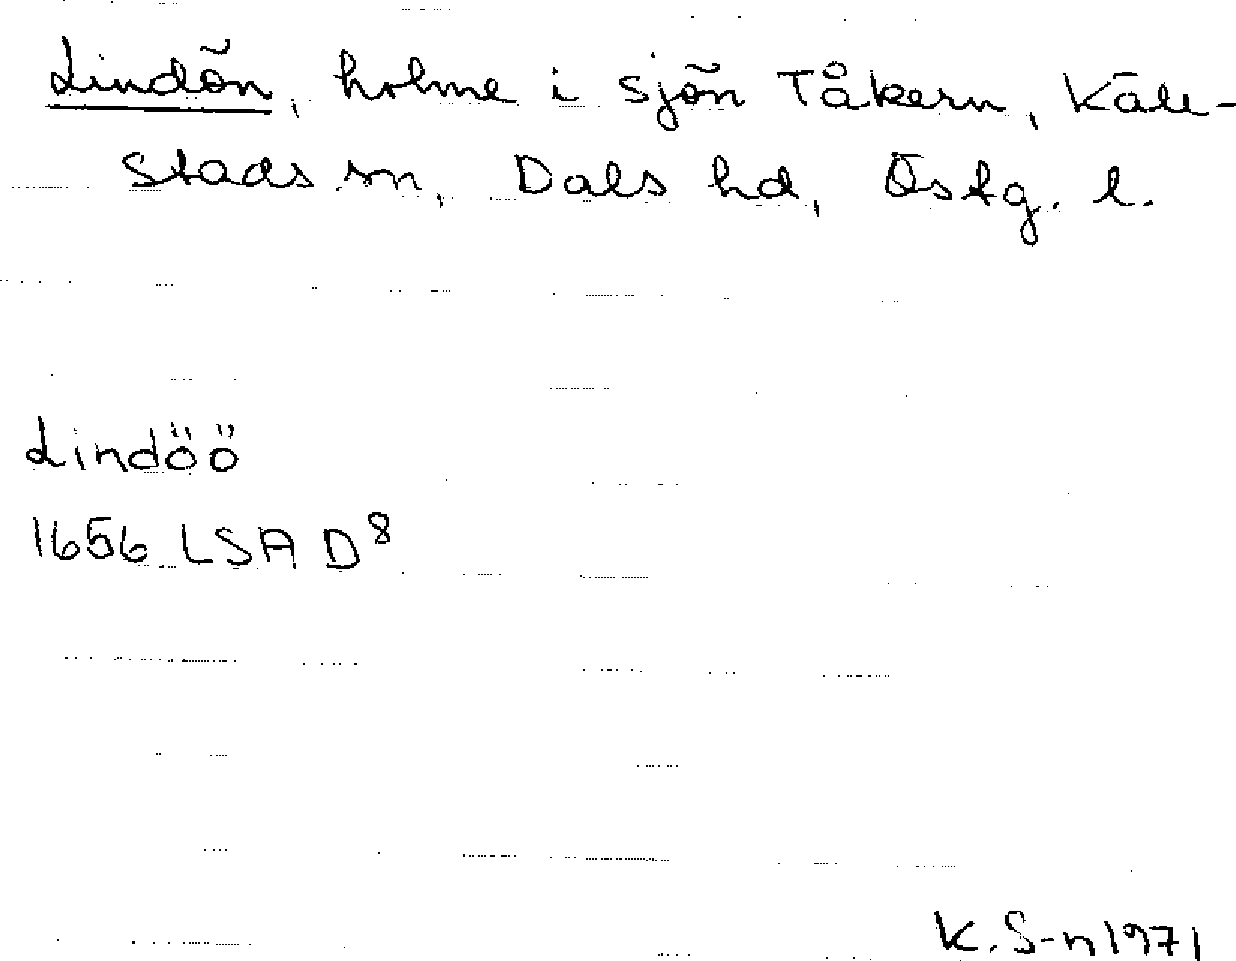 Lindön, holme i sjön Tåkern, Käll-
stads sn, Dals hd, Östg. l.
Lindöö
1656 LSA D8
K. S-n 1971